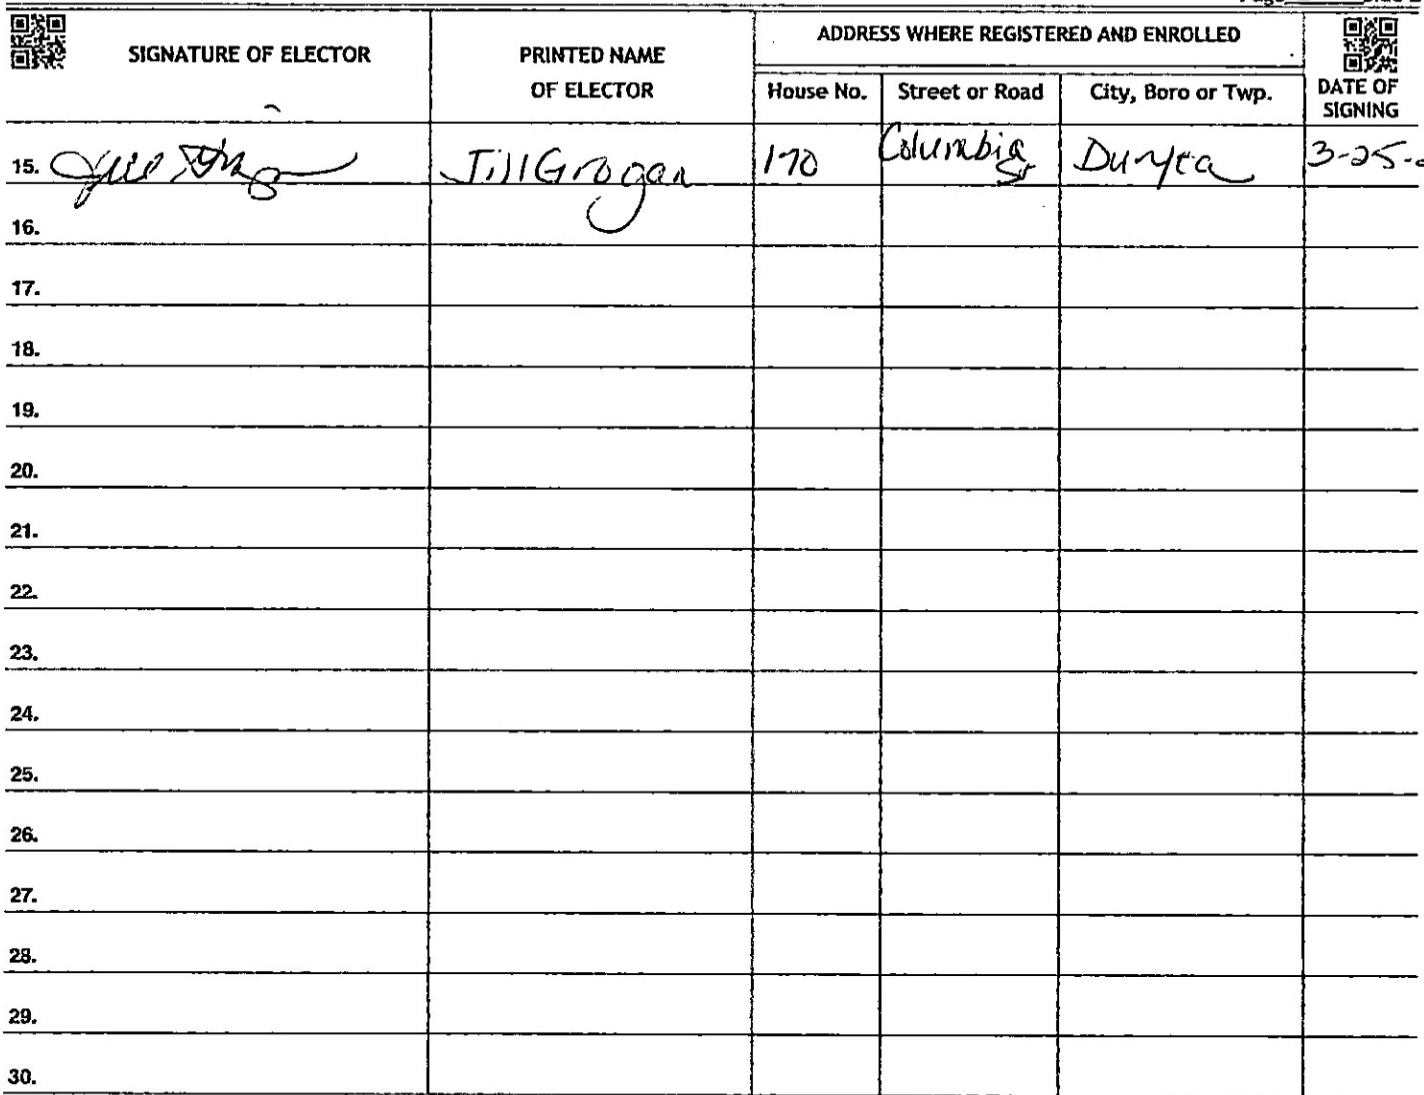 SIGNATURE OF ELECTOR
PRINTED NAME
OF ELECTOR
ADDRESS WHERE REGISTERED AND ENROLLED
House No.
Street or Road
City, Boro or Twp.
DATE OF
SIGNING
15. Jill Grogan 170 Columbia St Duryea 3-25-
16.
17.
18.
19.
20.
21.
22.
23.
24.
25.
26.
27.
28.
29.
30.